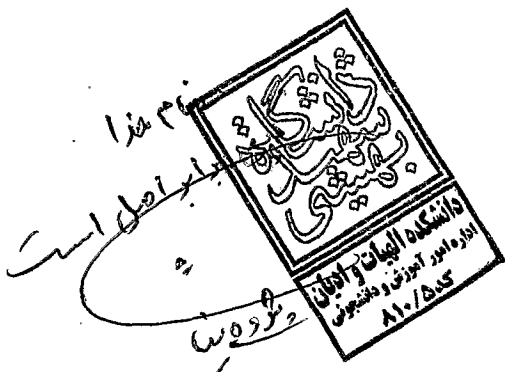 بنام خدا
برابر اصل است
دانشگاه
شهید
بهشتی
دانشکده الهیات و ادیان
اداره امور آموزش و دانشجوئی
کد ۸۱۰/۵